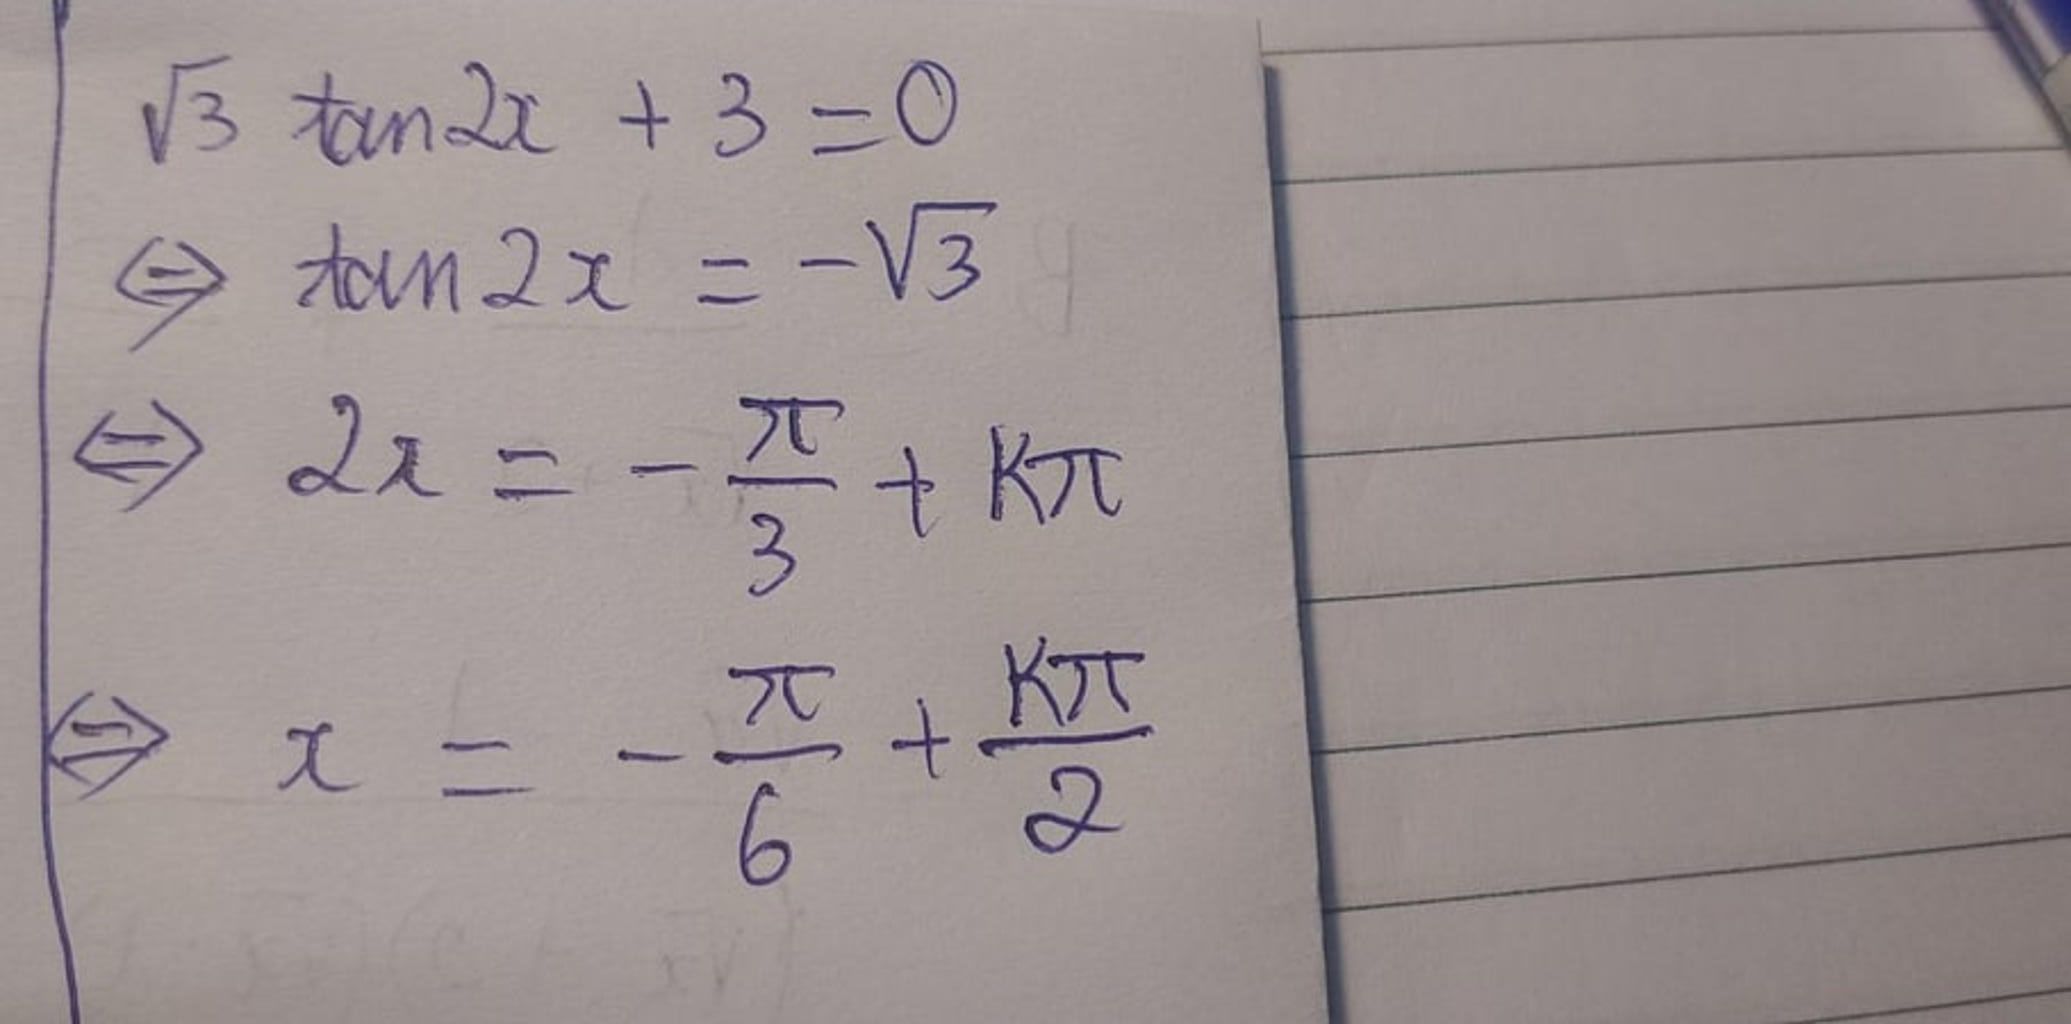 √3 tan2x + 3 = 0
⇔ tan2x = -√3
⇔ 2x = -π/3 + Kπ
⇔ x = -π/6 + Kπ/2